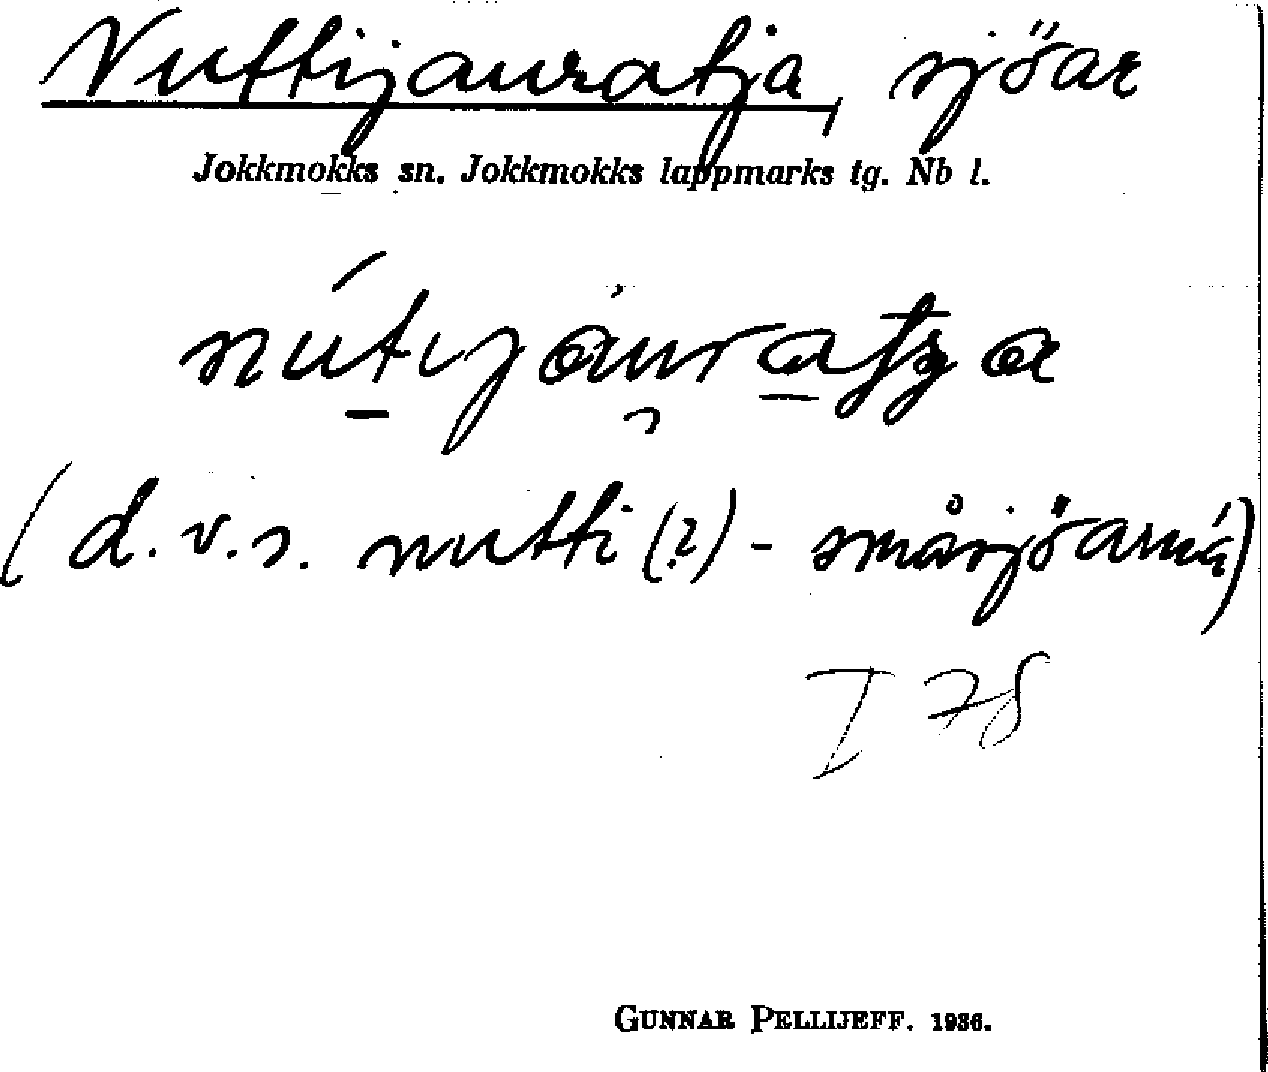 Nuttijauratja, sjöar
Jokkmokks sn. Jokkmokks lappmarks tg. Nb l.
nút̲ijáu̯ra̲tʒa
(d.v.s. nutti (?) - småsjöarna)
I 78
GUNNAR PELLIJEFF. 1936.